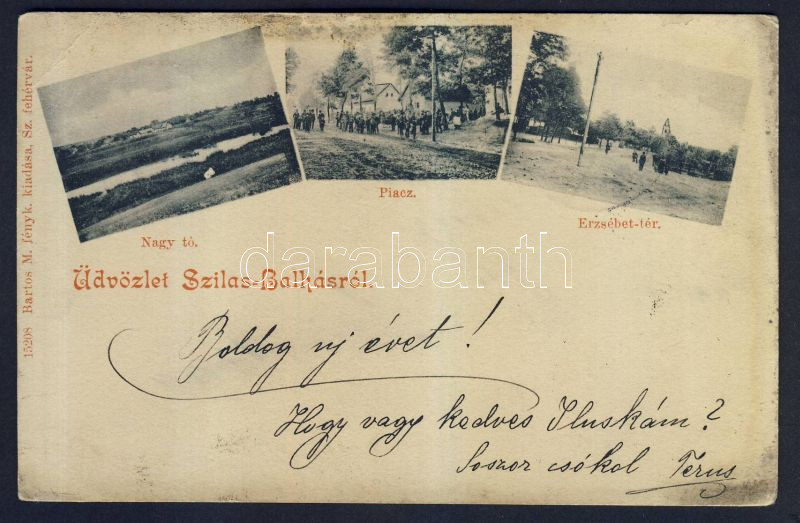 15208 Bartos M. fényk. kiadása, Sz. fehérvár.
Nagy tó.
Piacz.
Erzsébet-tér.
darabanth
Üdvözlet Szilas-Balhásról.
Boldog uj évet!
Hogy vagy kedves Iluskám?
Soszor csókol Terus